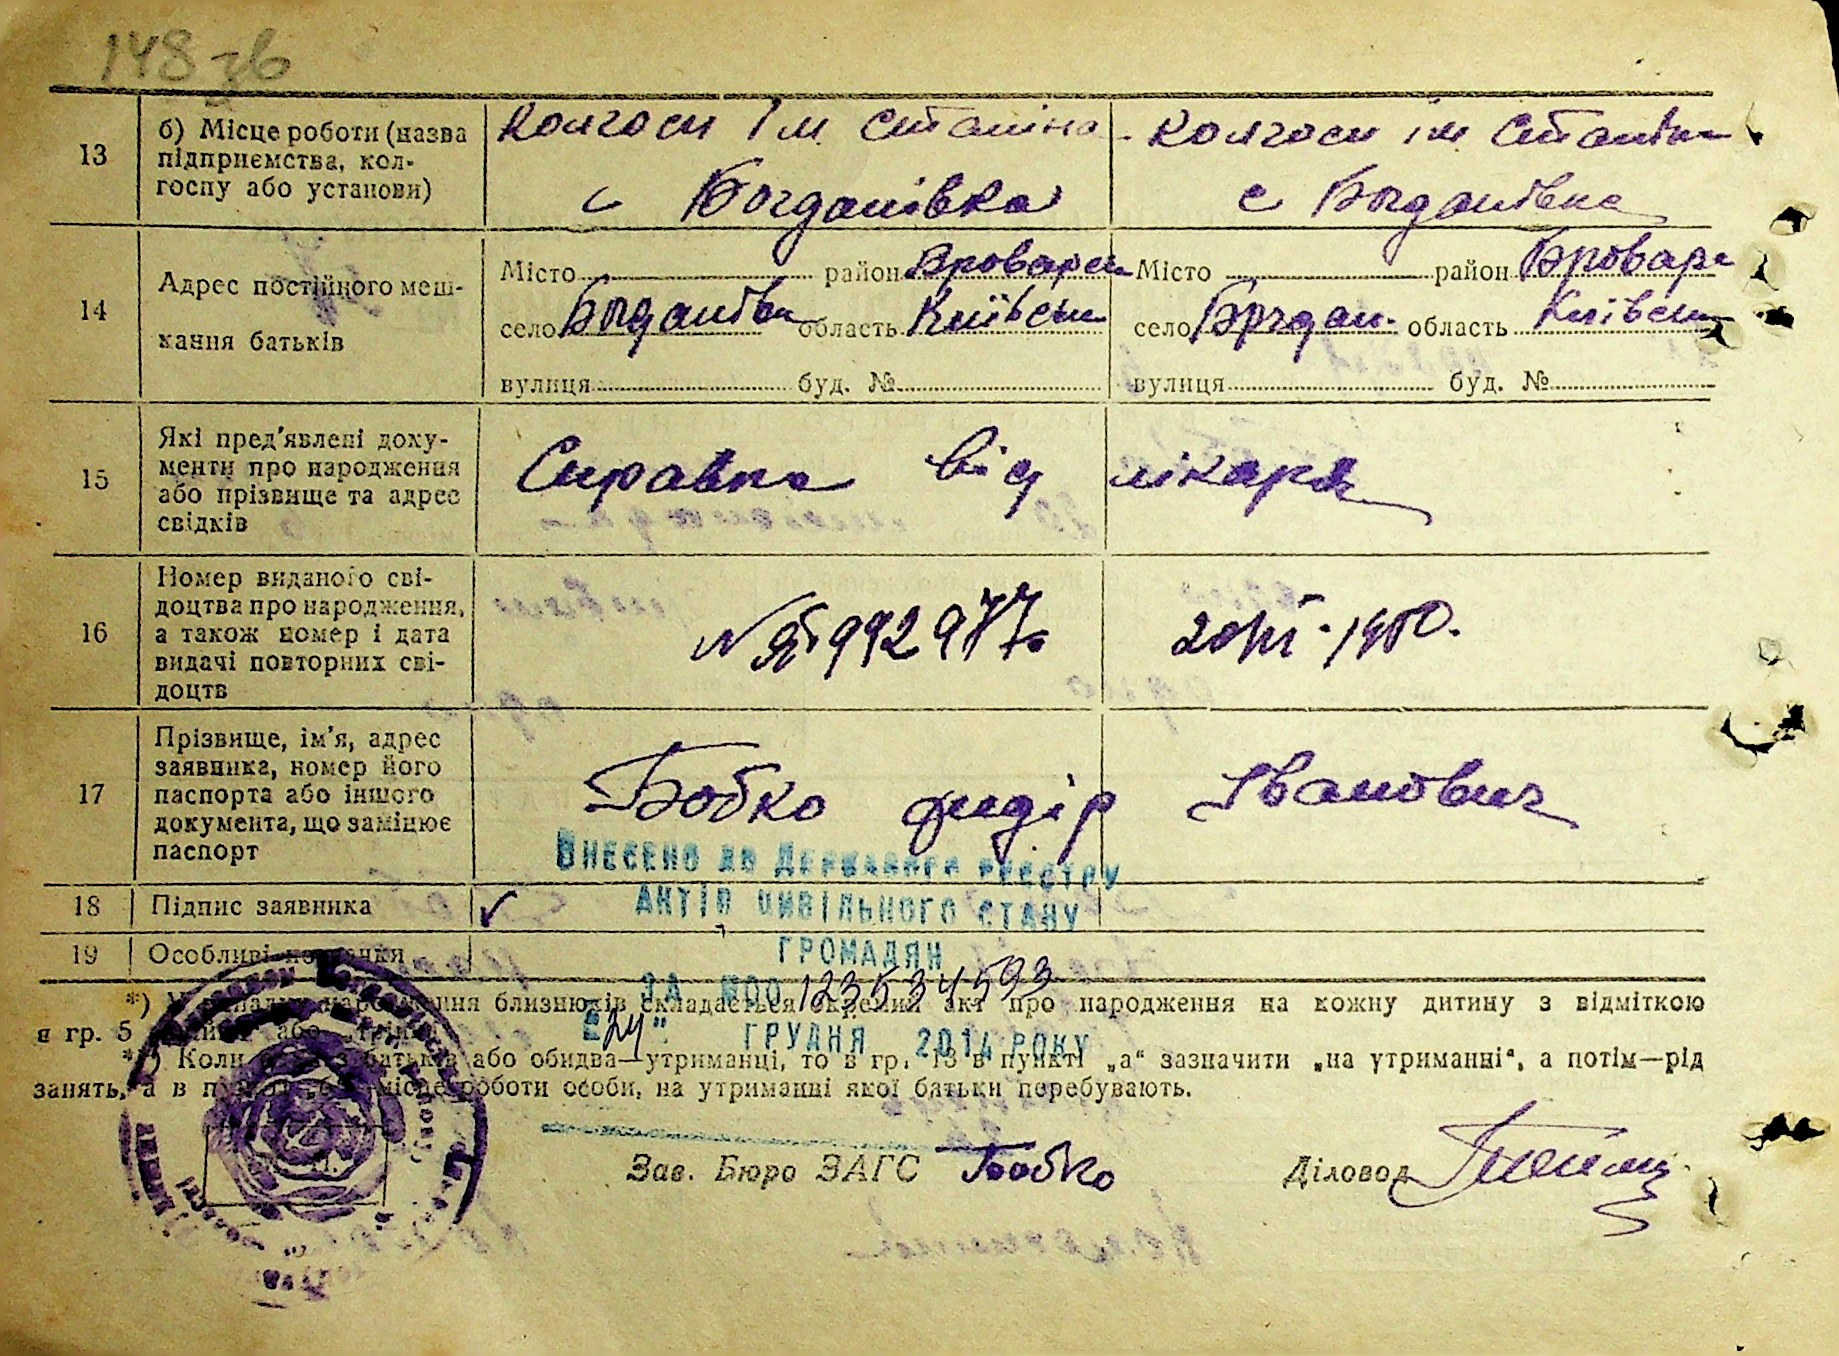 148 зв
13
б) Місце роботи (назва підприємства, колгоспу або установи)
Колгосп Ім. Сталіна
с Богданівка
Колгосп ім. Сталіна
с Богданівка
14
Адрес постійного мешкання батьків
Місто район Броварськ
село Богданівка область Київськ
вулиця буд. №
Місто район Бровар
село Богдан. область Київськ
вулиця буд. №
15
Які пред'явлені документи про народження або прізвище та адрес свідків
Справка від лікаря
16
Номер виданого свідоцтва про народження, а також номер і дата видачі повторних свідоцтв
992977
1950.
17
Прізвище, ім'я, адрес заявника, номер його паспорта або іншого документа, що замінює паспорт
Бобко Федір Іванович
Внесено до Державного реєстру
актів цивільного стану
громадян
18
Підпис заявника
19
Особливі
за №00 123534593
"24" грудня 2014 року
*) народження близнюків складається окремий акт про народження на кожну дитину з відміткою
в гр. 5 або
**) Коли з батьків або обидва—утриманці, то в гр. 13 в пункті „а“ зазначити „на утриманні“, а потім—рід
занять, а в місце роботи особи, на утриманні якої батьки перебувають.
Зав. Бюро ЗАГС Бобко
Діловод